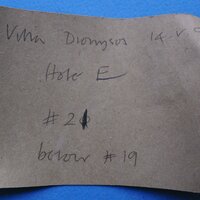 Villa Dionysos 14.V
Hole E
#21
below #19